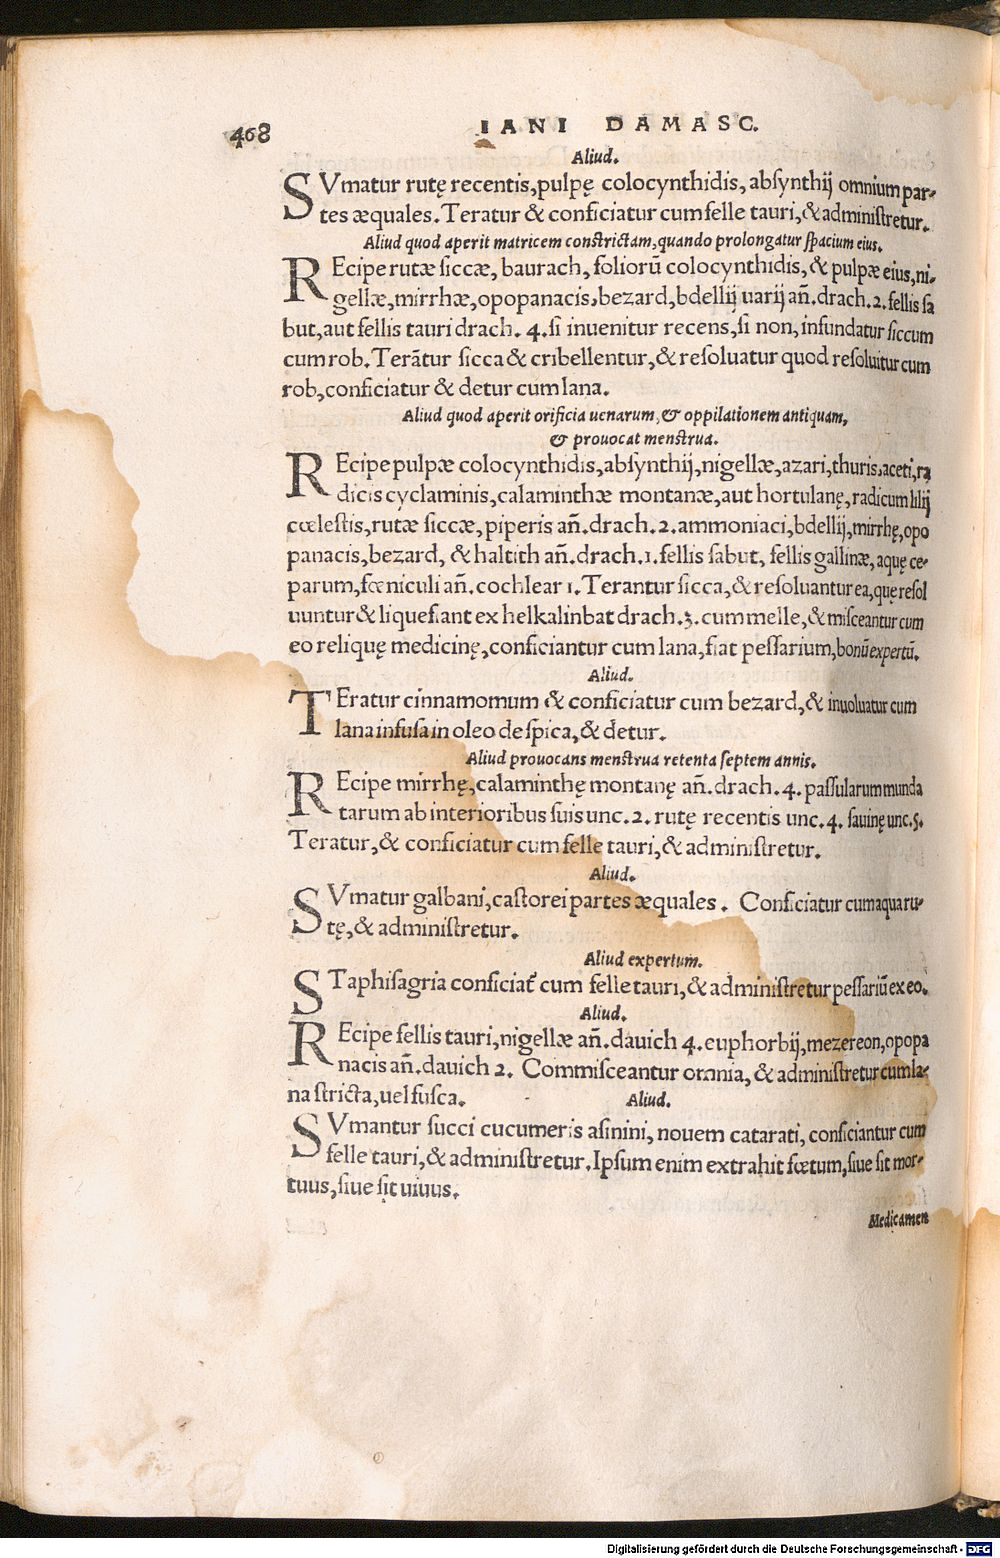 468
IANI DAMASC.
Aliud.
SVmatur rutę recentis, pulpę colocynthidis, absynthij omnium par-
tes æquales. Teratur & conficiatur cum felle tauri, & administretur.
Aliud quod aperit matricem constrictam, quando prolongatur spacium eius.
REcipe rutæ siccæ, baurach, foliorũ colocynthidis, & pulpæ eius, ni-
gellæ, mirrhæ, opopanacis, bezard, bdellij uarij añ. drach. 2. fellis sa
but, aut fellis tauri drach. 4. si inuenitur recens, si non, infundatur siccum
cum rob. Terãtur sicca & cribellentur, & resoluatur quod resoluitur cum
rob, conficiatur & detur cum lana.
Aliud quod aperit orificia uenarum, & oppilationem antiquam,
& prouocat menstrua.
REcipe pulpæ colocynthidis, absynthij, nigellæ, azari, thuris, aceti, ra
dicis cyclaminis, calaminthæ montanæ, aut hortulanę, radicum lilij
cœlestis, rutæ siccæ, piperis añ. drach. 2. ammoniaci, bdellij, mirrhę, opo
panacis, bezard, & haltith añ. drach. 1. fellis sabut, fellis gallinæ, aquę ce-
parum, fœniculi añ. cochlear 1. Terantur sicca, & resoluantur ea, quę resol
uuntur & liquefiant ex helkalinbat drach. 3. cum melle, & misceantur cum
eo reliquę medicinę, conficiantur cum lana, fiat pessarium, bonũ expertũ.
Aliud.
TEratur cinnamomum & conficiatur cum bezard, & inuoluatur cum
lana infusa in oleo de spica, & detur.
Aliud prouocans menstrua retenta septem annis.
REcipe mirrhę, calaminthę montanę añ. drach. 4. passularum munda
tarum ab interioribus suis unc. 2. rutę recentis unc. 4. sauinę unc. 5.
Teratur, & conficiatur cum felle tauri, & administretur.
Aliud.
SVmatur galbani, castorei partes æquales. Conficiatur cum aqua ru-
tę, & administretur.
Aliud expertum.
STaphisagria conficiat᷑ cum felle tauri, & administretur pessariũ ex eo.
Aliud.
REcipe fellis tauri, nigellæ añ. dauich 4. euphorbij, mezereon, opopa
nacis añ. dauich 2. Commisceantur omnia, & administretur cum la-
na stricta, uel fusca.
Aliud.
SVmantur succi cucumeris asinini, nouem catarati, conficiantur cum
felle tauri, & administretur. Ipsum enim extrahit fœtum, siue sit mor-
tuus, siue sit uiuus.
Medicamen
Digitalisierung gefördert durch die Deutsche Forschungsgemeinschaft - DFG